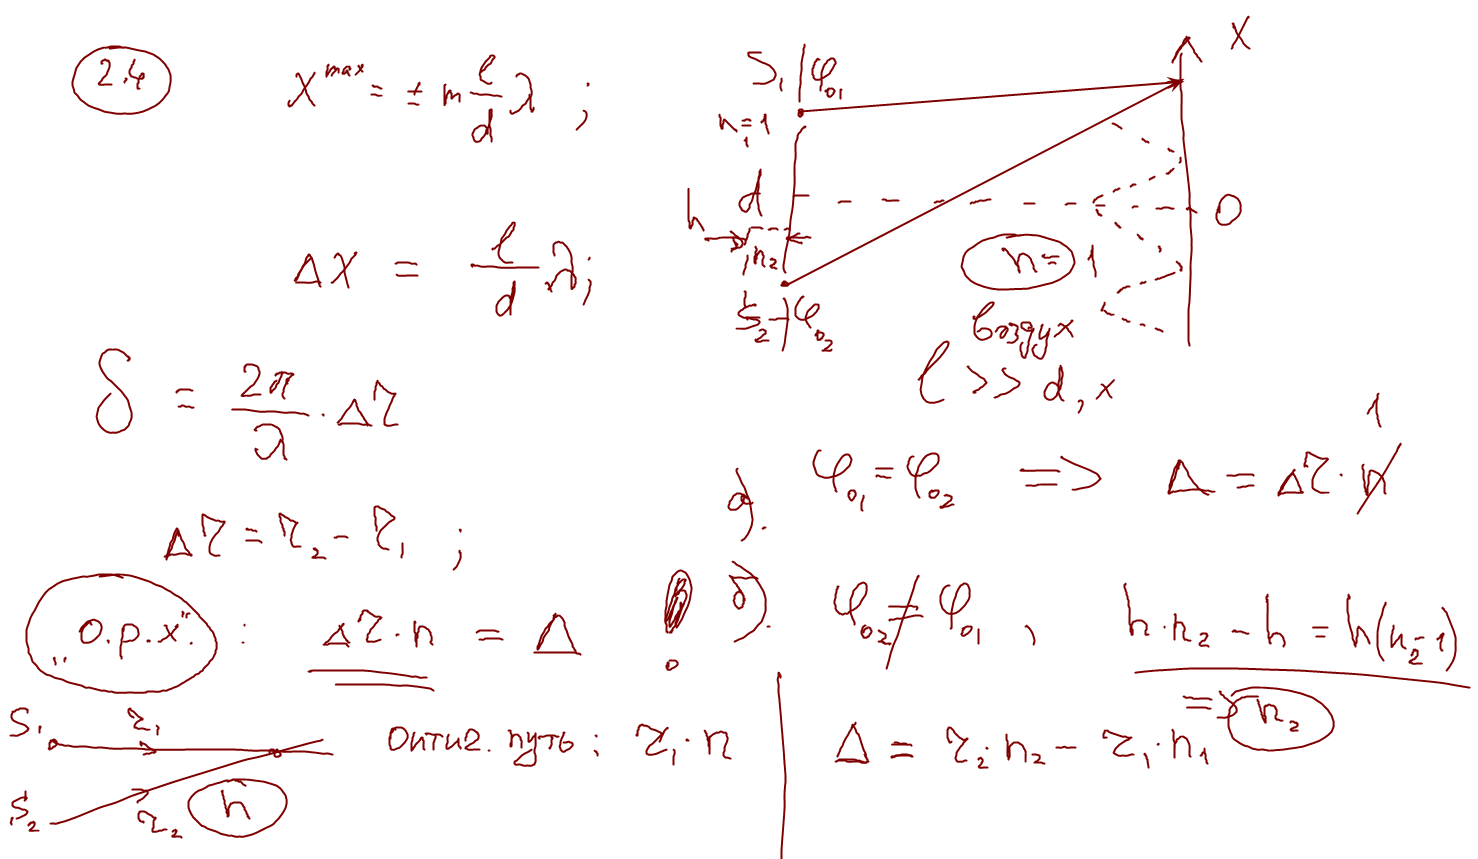 2.4
x^max = ± m l/d λ ;
Δx = l/d λ;
δ = 2π/λ · Δr
Δr = r₂ - r₁ ;
"о.р.х." : Δr · n = Δ
S₁ r₁
S₂ r₂ n
оптич. путь : r₁ · n
S₁ φ₀₁ x
n₁=1
d
h 0
n₂ n=1
S₂ φ₀₂ воздух
l >> d, x
а). φ₀₁ = φ₀₂ => Δ = Δr · n 1
! б). φ₀₂ ≠ φ₀₁ , h·n₂ - h = h(n₂-1)
=> n₂
Δ = r₂·n₂ - r₁·n₁